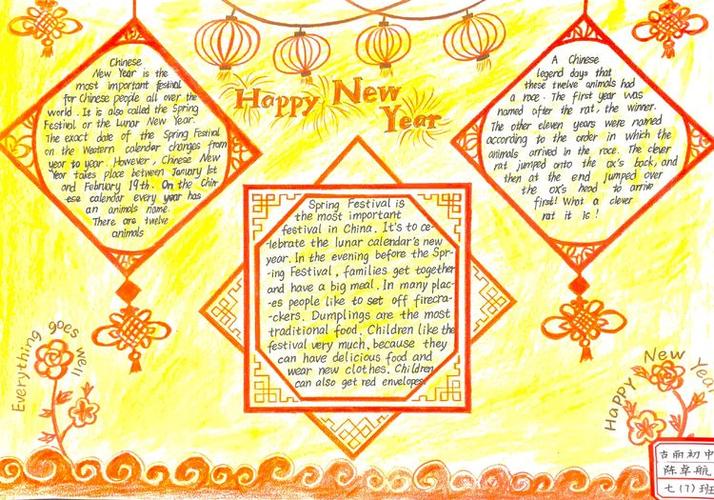 Happy New
Year
Chinese
New Year is the
most important festival
for Chinese people all over the
world. It is also called the Spring
Festival or the Lunar New Year.
The exact date of the Spring Festival
on the Western calendar changes from
year to year. However, Chinese New
Year takes place between January 1st
and February 19th. On the Chin-
ese calendar every year has
an animals name.
There are twelve
animals
A Chinese
legend days that
these twelve animals had
a race. The first year was
named after the rat, the winner.
The other eleven years were named
according to the order in which the
animals arrived in the race. The clever
rat jumped onto the ox's back, and
then at the end jumped over
the ox's head to arrive
first! What a clever
rat it is!
Spring Festival is
the most important
festival in China. It's to ce-
lebrate the lunar calendar's new
year. In the evening before the Spr-
ing Festival, families get together
and have a big meal. In many plac-
es people like to set off firecra-
-ckers. Dumplings are the most
traditional food. Children like the
festival very much, because they
can have delicious food and
wear new clothes. Children
can also get red envelopes.
Everything goes well
Happy New Year
古丽初中
陈卓航
七(7)班